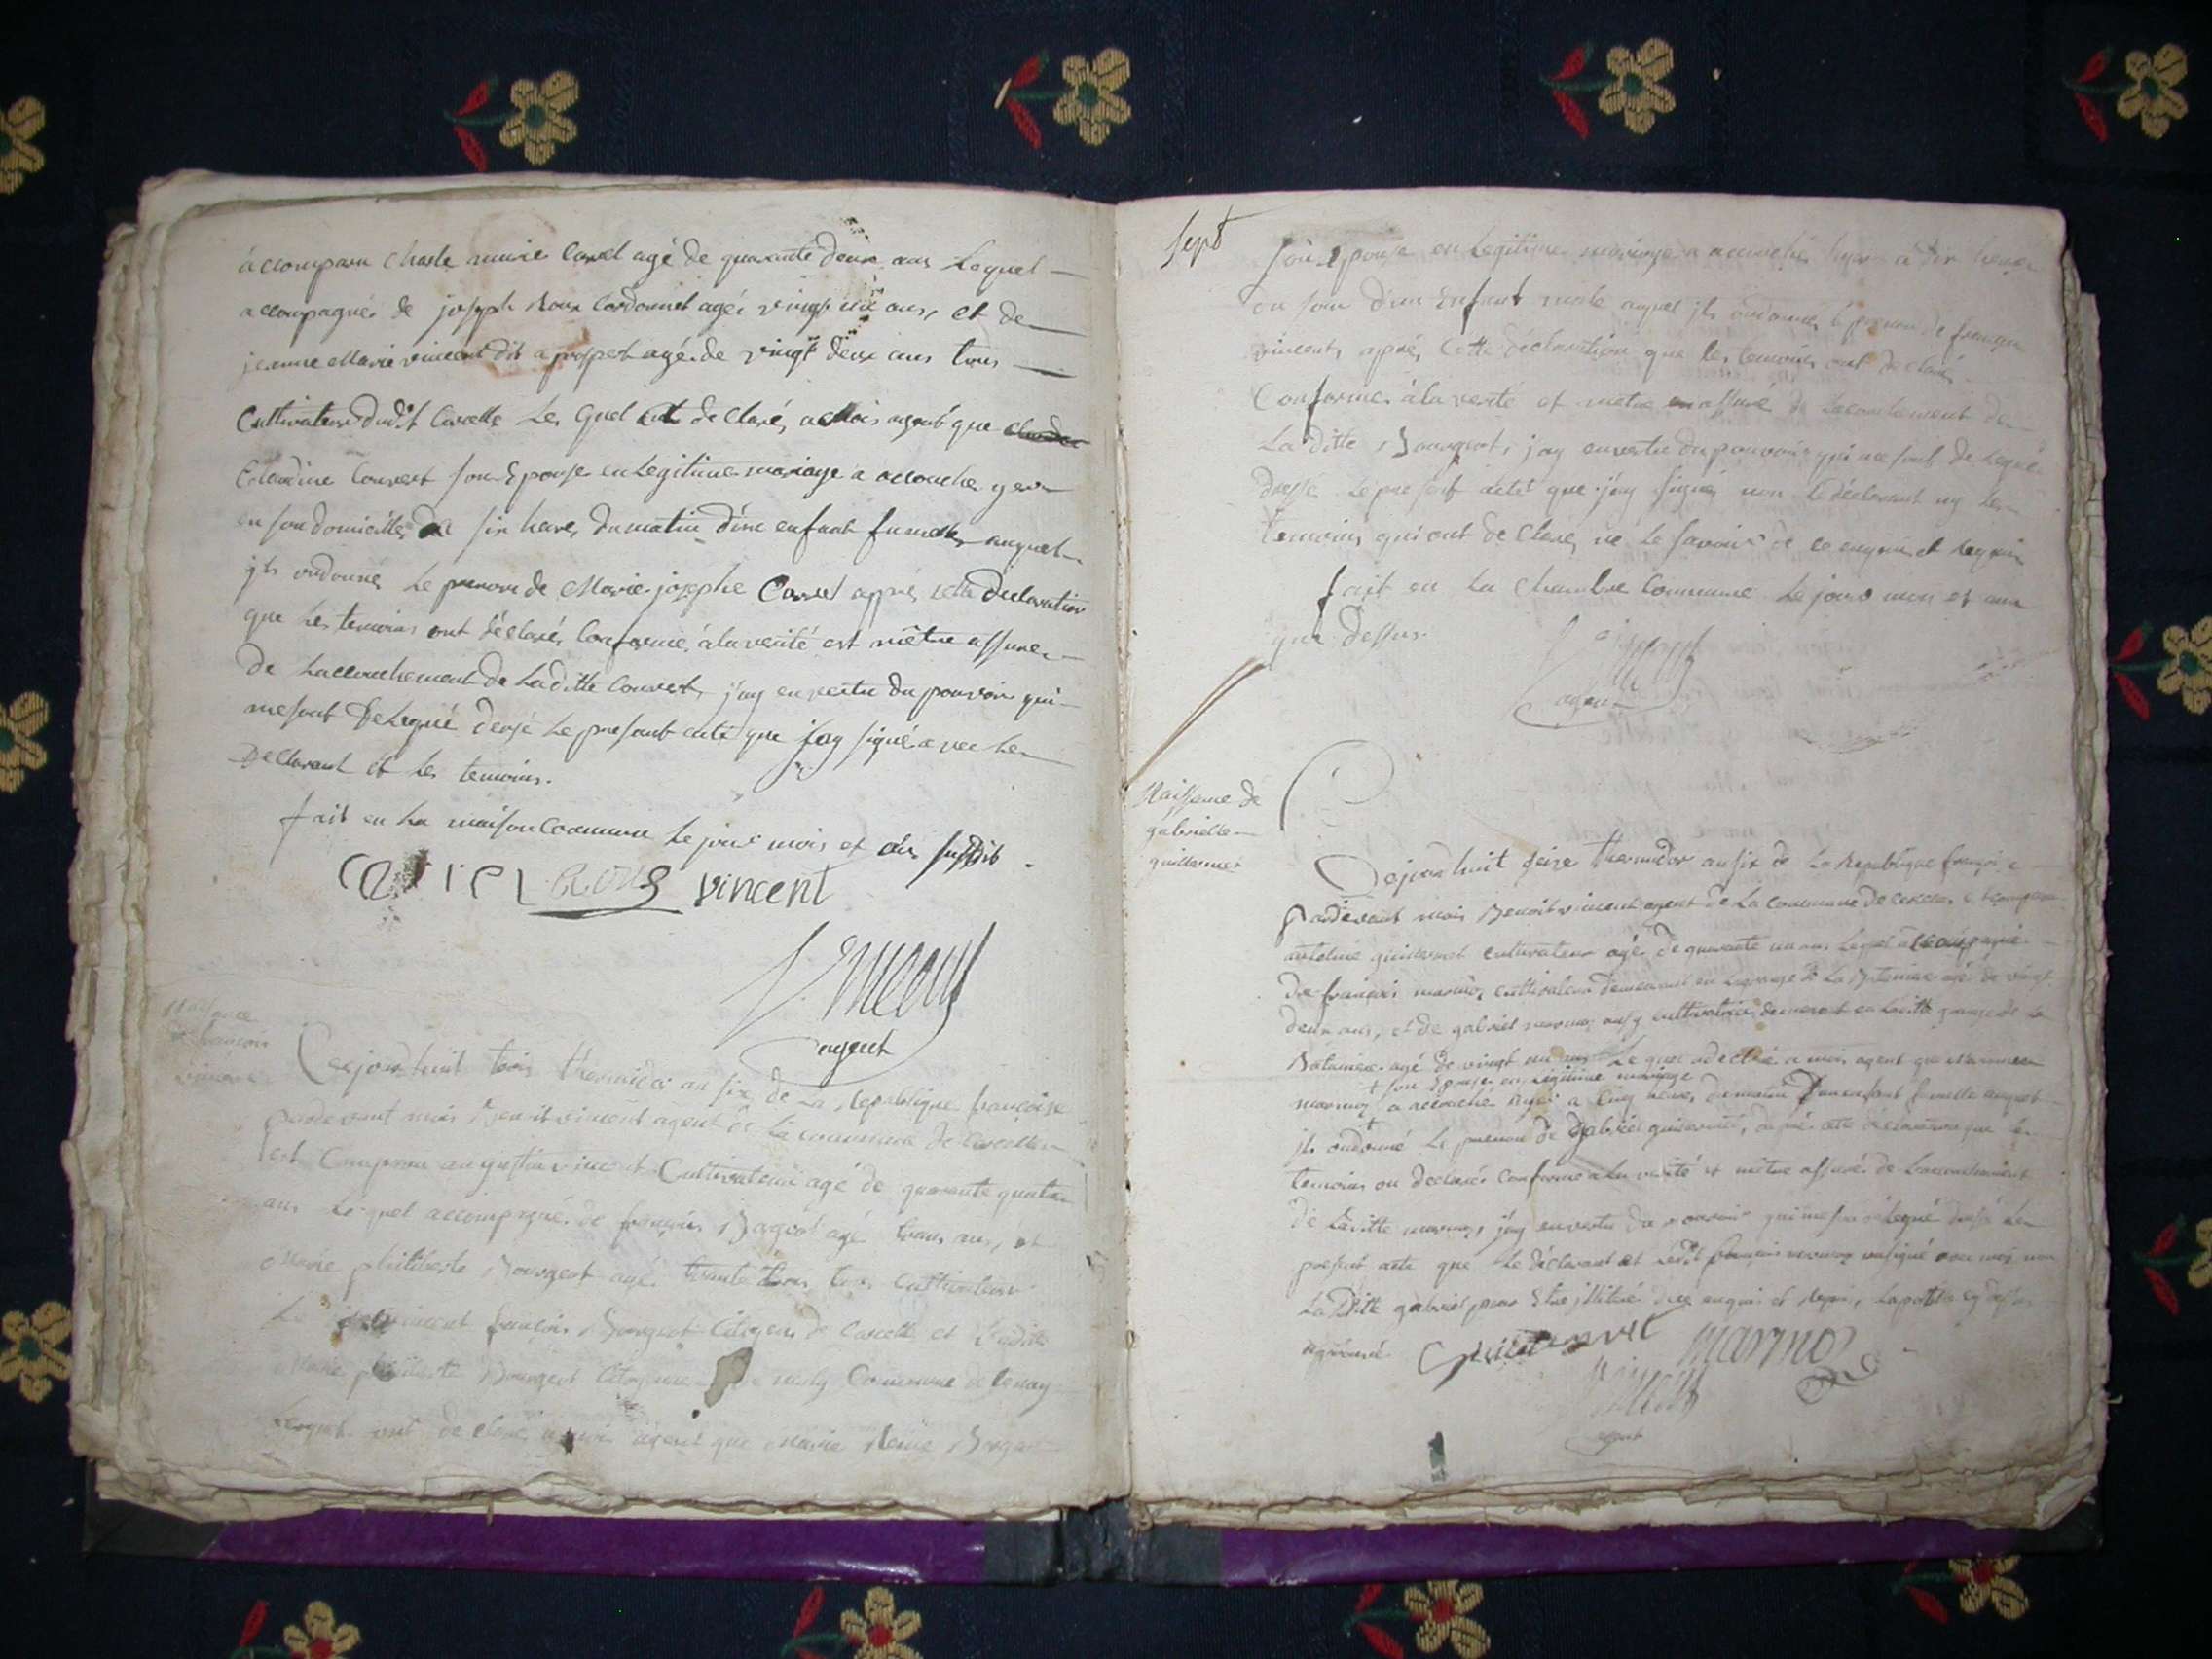 accomparu Charle marie Carrel agé de quarante deux ans Lequel
accompagnés de joseph Roux Cordonnet agés vingt un ans, et de
jeanne Marie vincent dit a prospert agé de vingt deux ans tous
Cultivateurs dudit Corcelle Les quel ont declarés a mois agent que
Claudine Convert son Epouse en Legitime mariage a accouche yer
en son domicille six heures du matin d'une enfant fumelle auquel
jls ondonnés Le prenom de Marie josephe Carrel apprés cette declaration
que Les temoins ont déclarés Conforme à la verité est m'être assurer
de Laccouchement de Laditte Convert, j'ay en vertu du pouvoir qui
mesont Delegué dressé Le presant acte que j'ay signé avec Le
Declarant et Les temoins.
fait en La maison Commune Le jour mois et an susdit
Carrel Roux vincent
Vincent
agent
Naissance
de francois
vincent
Cejourdhuit trois thermidor an six de La Republique francoise
pardevant mois Benoit vincent agent de La commune de Corcelles
est Comparu augustin vincent Cultivateur agé de quarante quatre
ans Lequel accompagné de françois Borgeot agé trans ans, et
Marie philiberte Bourgeot agé trante trois tous Cultivateurs
Le francois Bourgeot Citoyens de Corcelle et Ladite
Marie philiberte Bourgeot Citoyenne Commune de
Lesquels ont declarés a mois agent que Marie Reine Borgeot
Sept
son Epouse en Legitime mariage a accouché hyer à dix heures
du soir d'un Enfant male auquel jls ondonnés le prenom de françois
vincent, apprés Cette déclaration que les temoins ont declarés
Conforme à la verité et metre assuré de Laccouchement de
La ditte Bourgeot, j'ay en vertu du pouvoir qui me sont delegué
dressé Le presant acte que j'ay signé non Le déclarant ny Les
temoins qui ont declarés ne Le savoir de ce enquis et requis
fait en La Chambre Commune Le jours mois et an
que dessus.
Vincent
agent
Naissance de
gabrielle
guillermet
Cejourdhuit seize thermidor an six de La Republique françoise
pardevant mois Benoit vincent agent de La Commune de Corcelles est comparu
antoine guillermet cultivateur agé de quarante un ans Lequel accompagné
de françois marmoz cultivateur demeurant en Lagrange de La Bataniere agé de vingt
deux ans, et de gabriel marmoz aussy cultivateur demeurant en Laditte grange de La
Bataniere agé de vingt un ans Le quel a declaré a mois agent que
+ son Epouse en Legitime mariage
marmoz a accouché hyer a cinq heures du matin d'un enfant fumelle auquel
jls ondonné Le prenom de gabriel guillermet, aprés cette déclaration que les
temoins on declarés conforme a La verité et metre assurés de Laccouchement
de Laditte marmoz, j'ay en vertu du pouvoir qui me sont delegué dressé Le
present acte que Le declarant et Ledit françois marmoz ont signé avec moi non
La Ditte gabriel pour Etre jllitéré de ce enquis et requis,
Guillermet marmoz
Vincent
agent